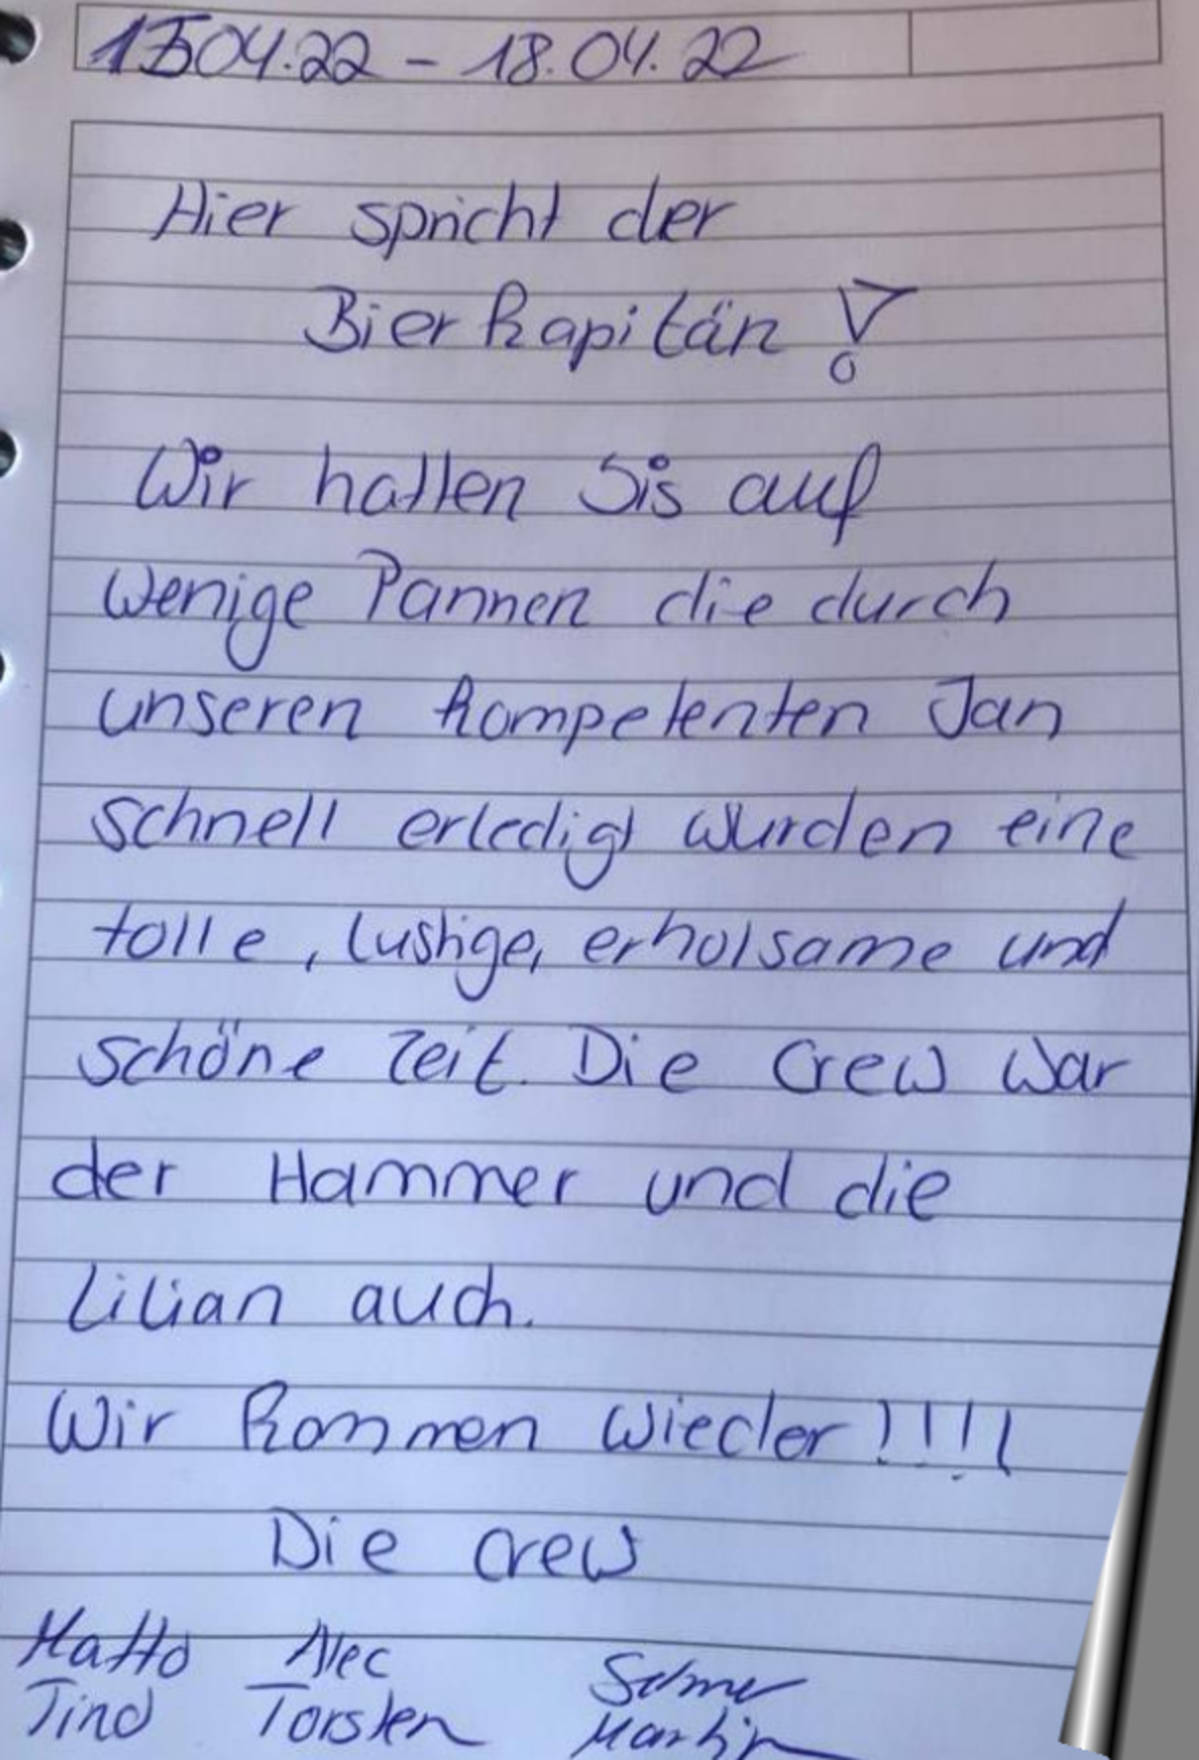 15.04.22 - 18.04.22
Hier spricht der
Bier Kapitän !
Wir hatten Sis auf
wenige Pannen die durch
unseren kompetenten Jan
schnell erledigt wurden eine
tolle, lustige, erholsame und
schöne Zeit. Die Crew war
der Hammer und die
Lilian auch.
Wir kommen wieder !!!!
Die Crew
Matto Alec
Tino Torsten Martin